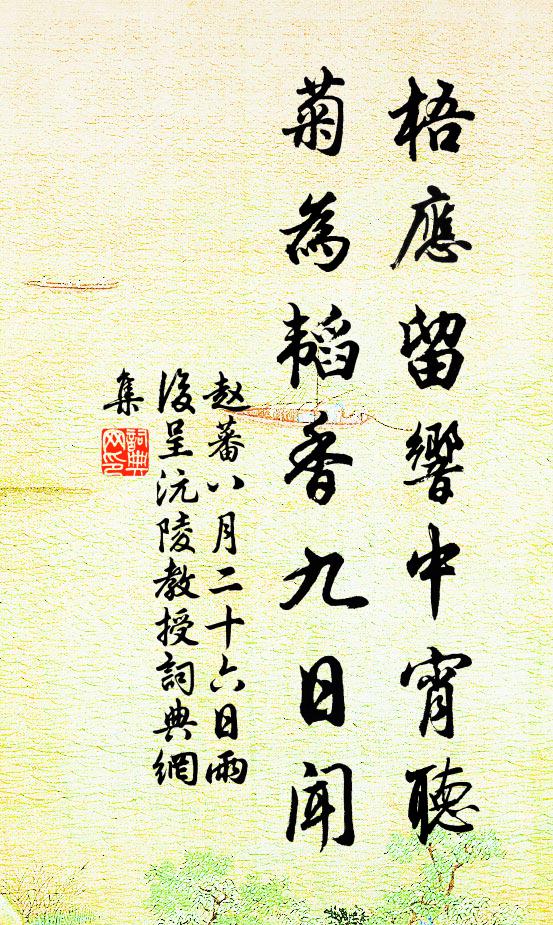 梧應留響中宵聽
菊為韜香九日聞
赵蕃八月二十六日雨
後呈沅陵教授詞典網
集
詞典網印